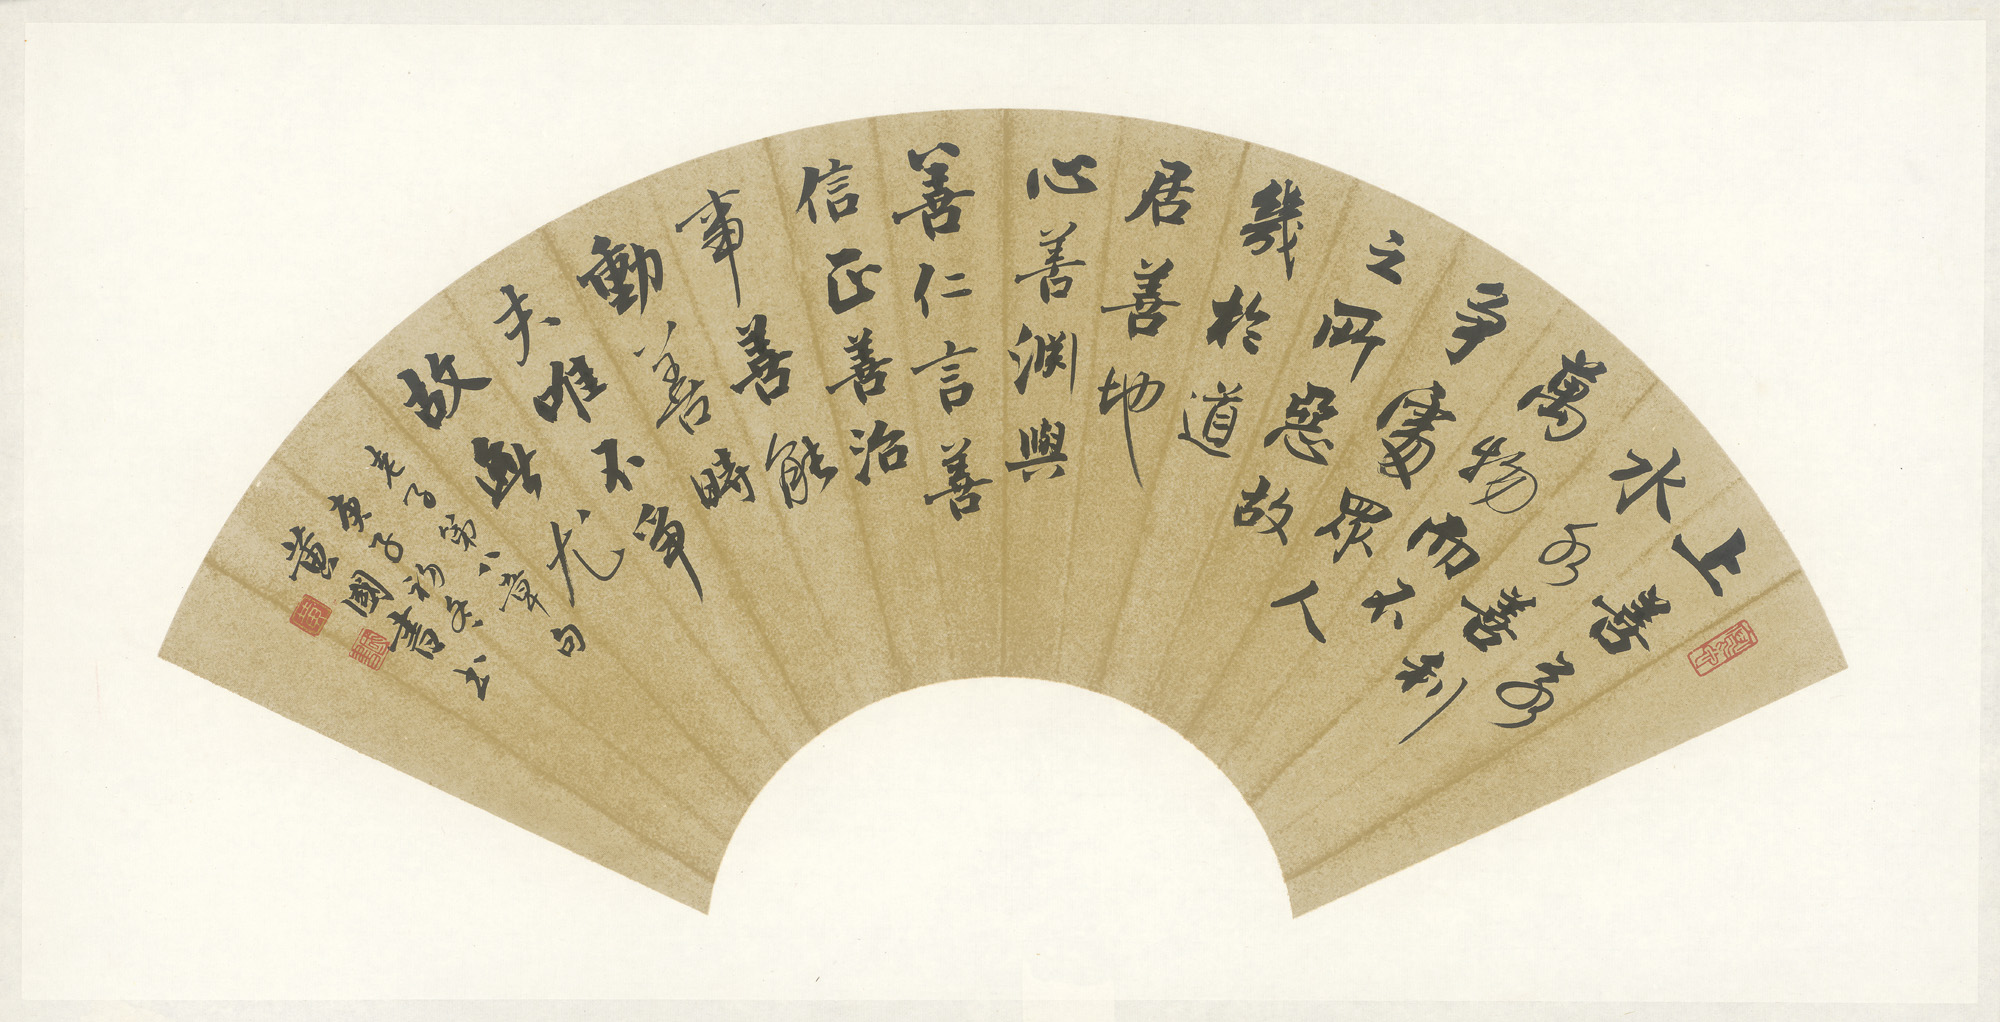 上善若
水水善利
萬物而不
爭處眾人
之所惡故
幾於道
居善地
心善淵與
善仁言善
信正善治
事善能
動善時
夫唯不爭
故無尤
老子第八章句
庚子初冬书
黃國書